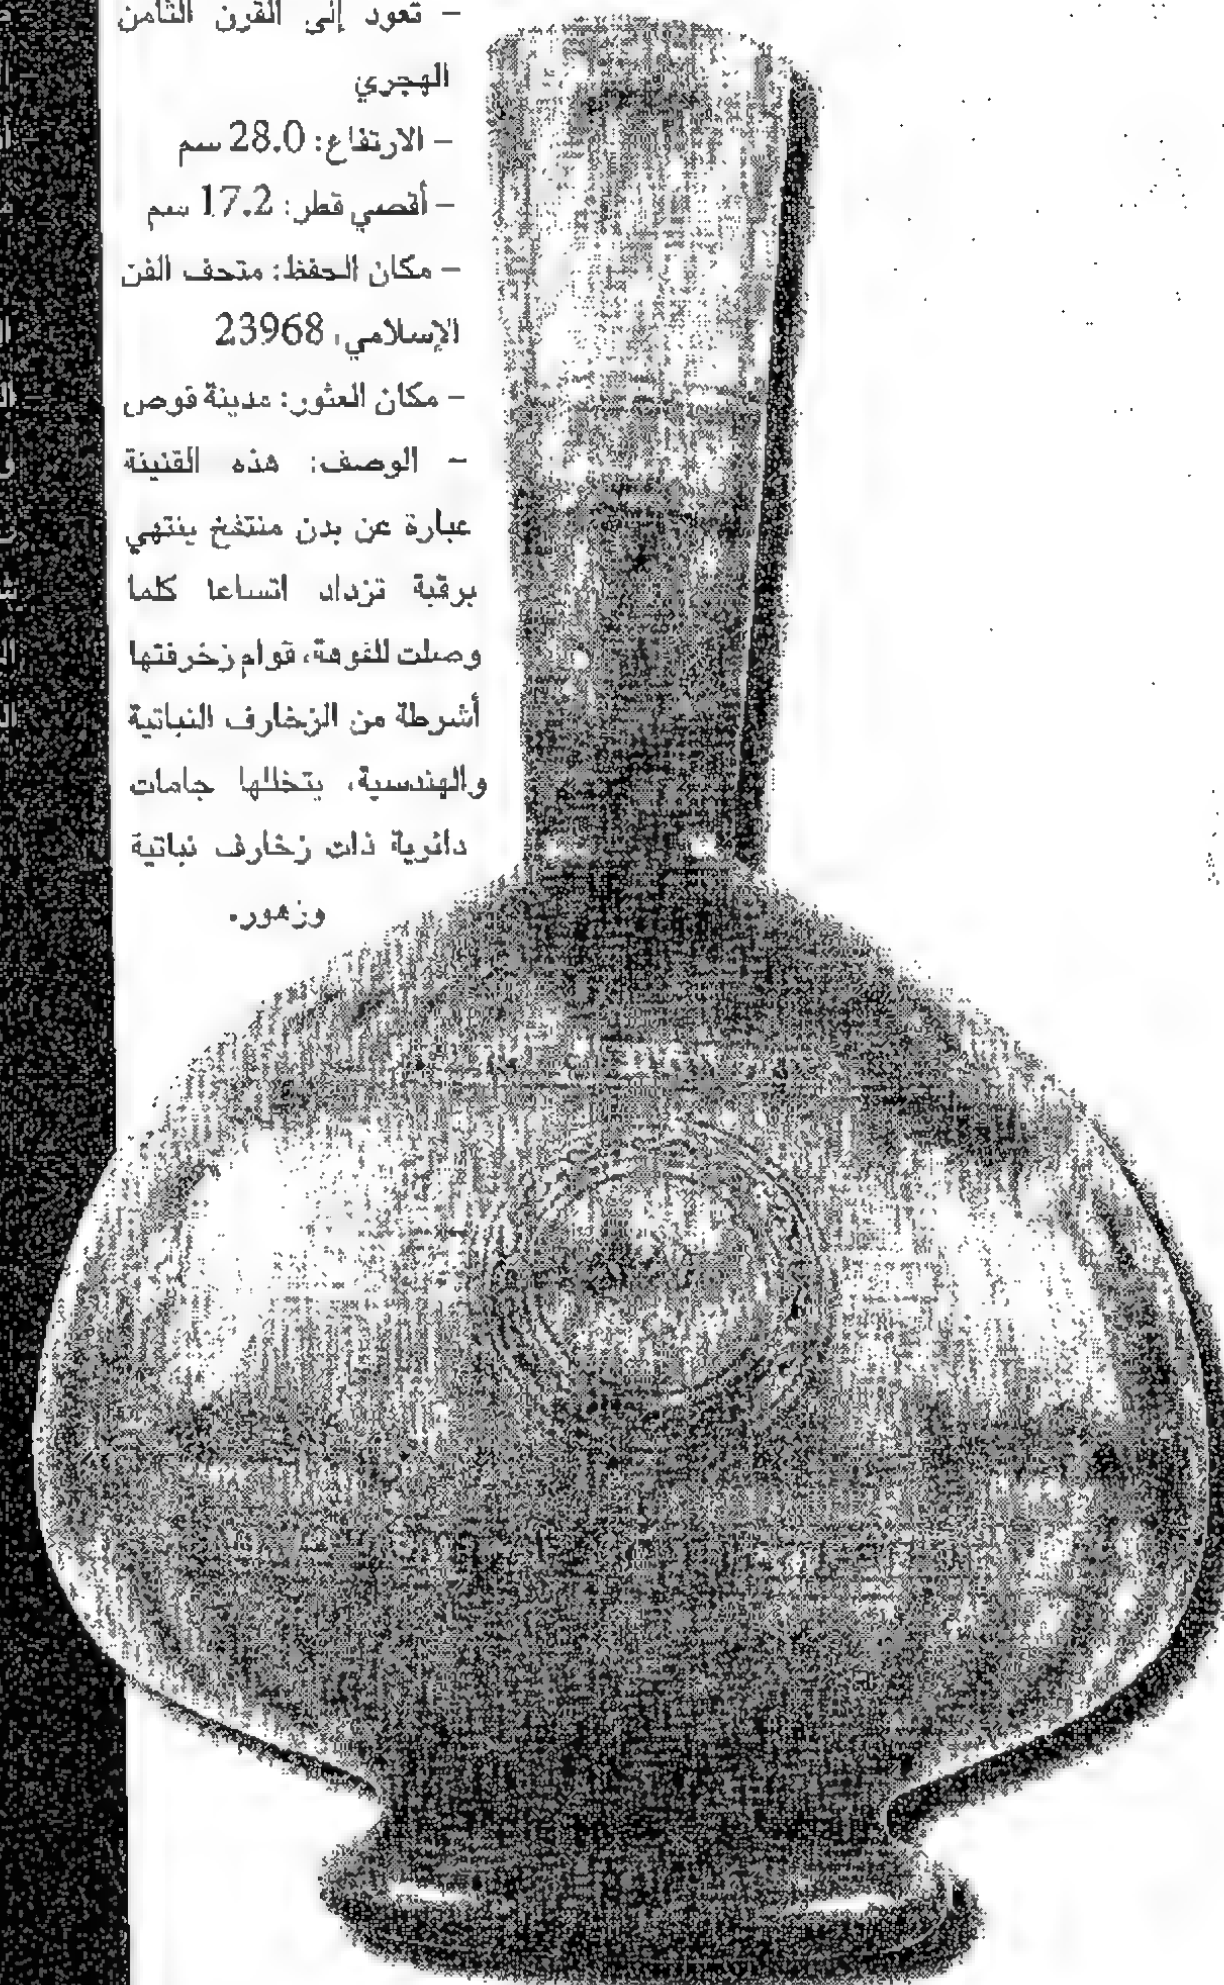 - تعود إلى القرن الثامن
الهجري
- الارتفاع: 28.0 سم
- أقصي قطر: 17.2 سم
- مكان الحفظ: متحف الفن
الإسلامي، 23968
- مكان العثور: مدينة قوص
- الوصف: هذه القنينة
عبارة عن بدن منتفخ ينتهي
برقبة تزداد اتساعا كلما
وصلت للفوهة، قوام زخرفتها
أشرطة من الزخارف النباتية
والهندسية، يتخللها جامات
دائرية ذات زخارف نباتية
وزهور.